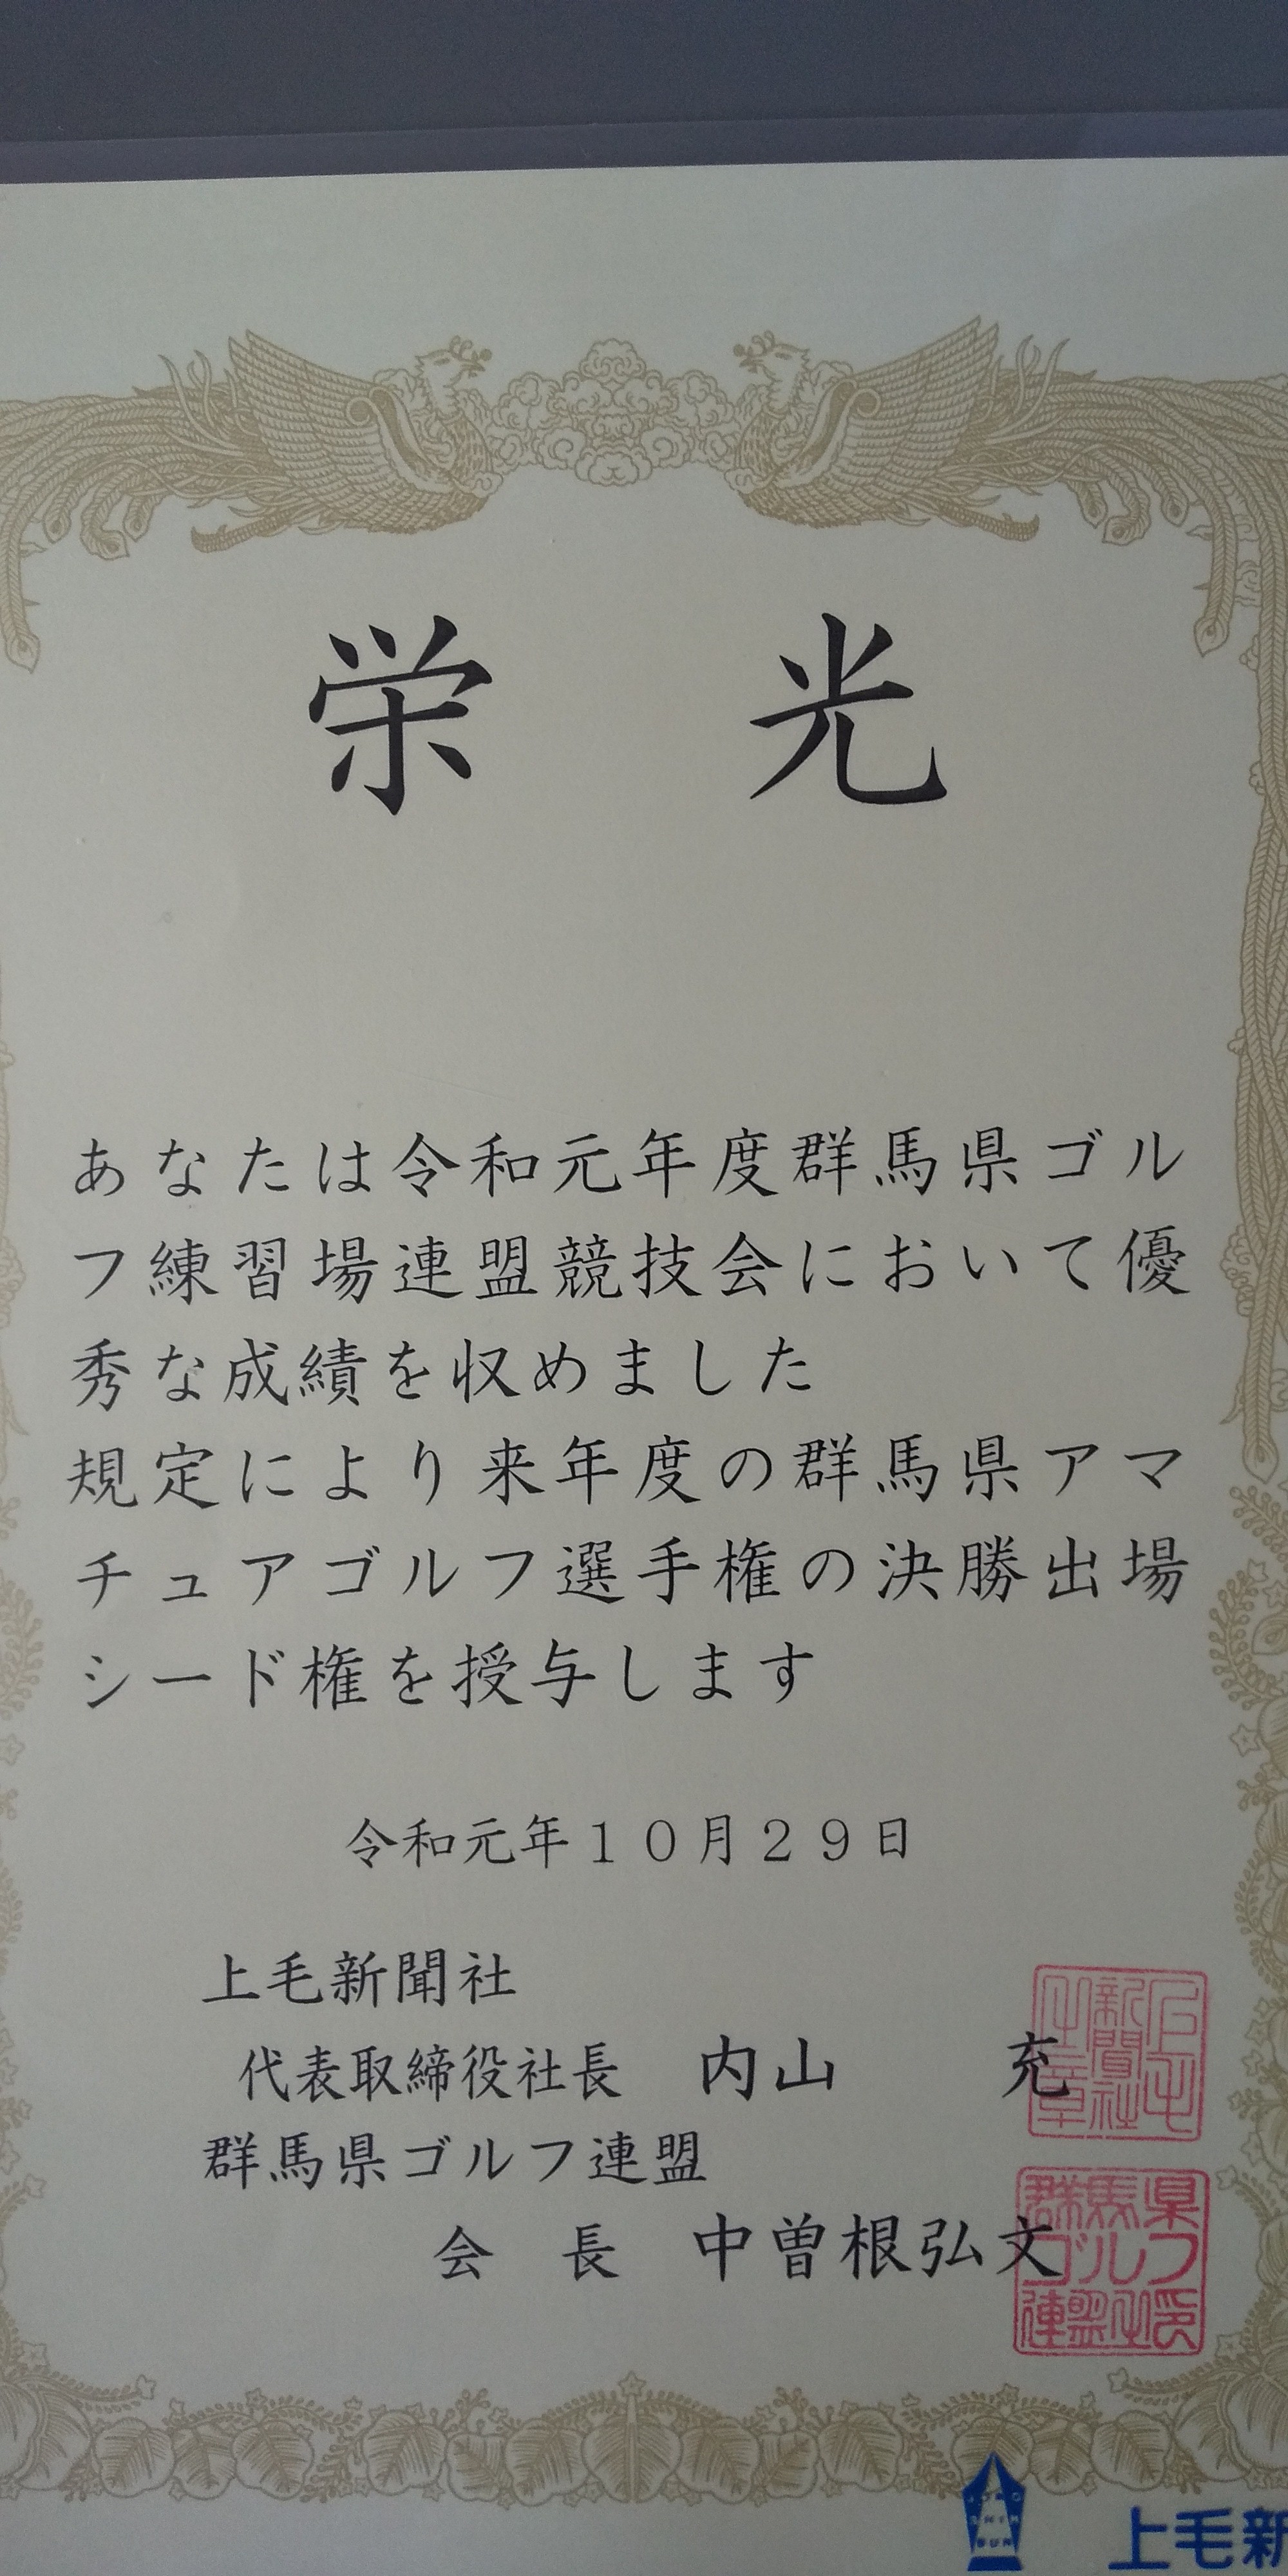 栄光
あなたは令和元年度群馬県ゴル
フ練習場連盟競技会において優
秀な成績を収めました
規定により来年度の群馬県アマ
チュアゴルフ選手権の決勝出場
シード権を授与します
令和元年１０月２９日
上毛新聞社
代表取締役社長 内山 充
群馬県ゴルフ連盟
会長 中曽根弘文
群馬県
ゴルフ
連盟之印
上毛新